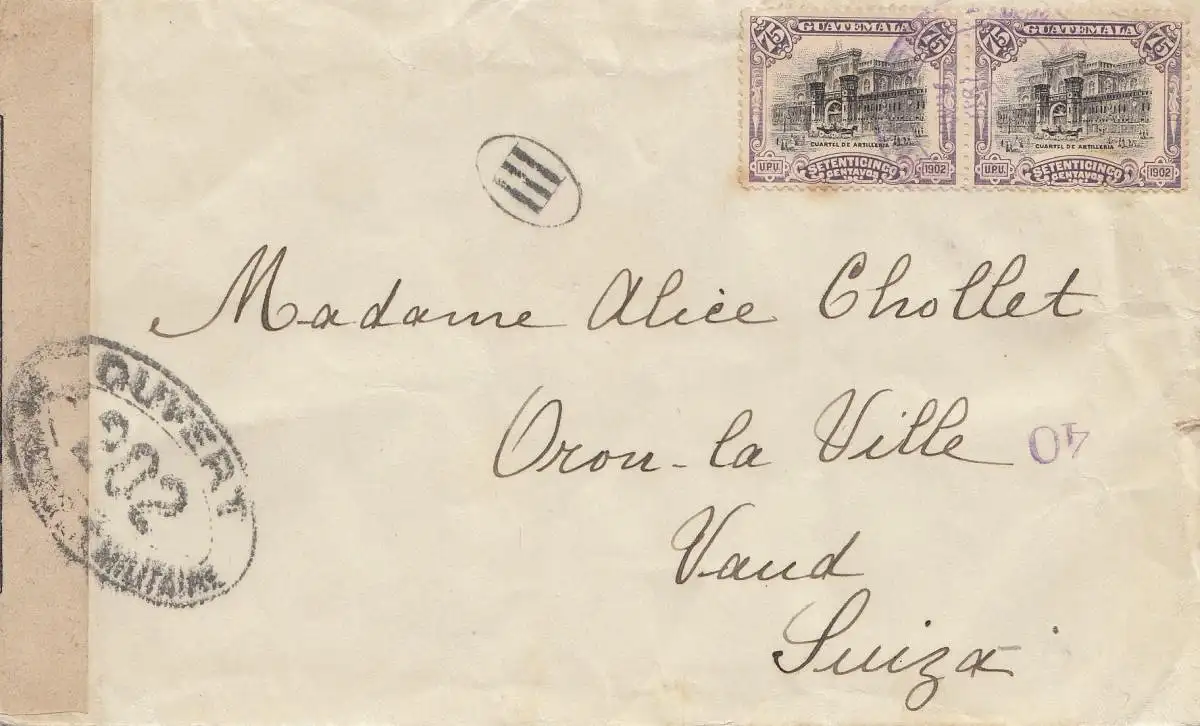 GUATEMALA
75 75
CUARTEL DE ARTILLERIA
U.P.U. SETENTICINCO CENTAVOS 1902
GUATEMALA
75 75
CUARTEL DE ARTILLERIA
U.P.U. SETENTICINCO CENTAVOS 1902
III
Madame Alice Chollet
Oron-la Ville
40
Vaud
Suiza
OUVERT
202
MILITAIRE